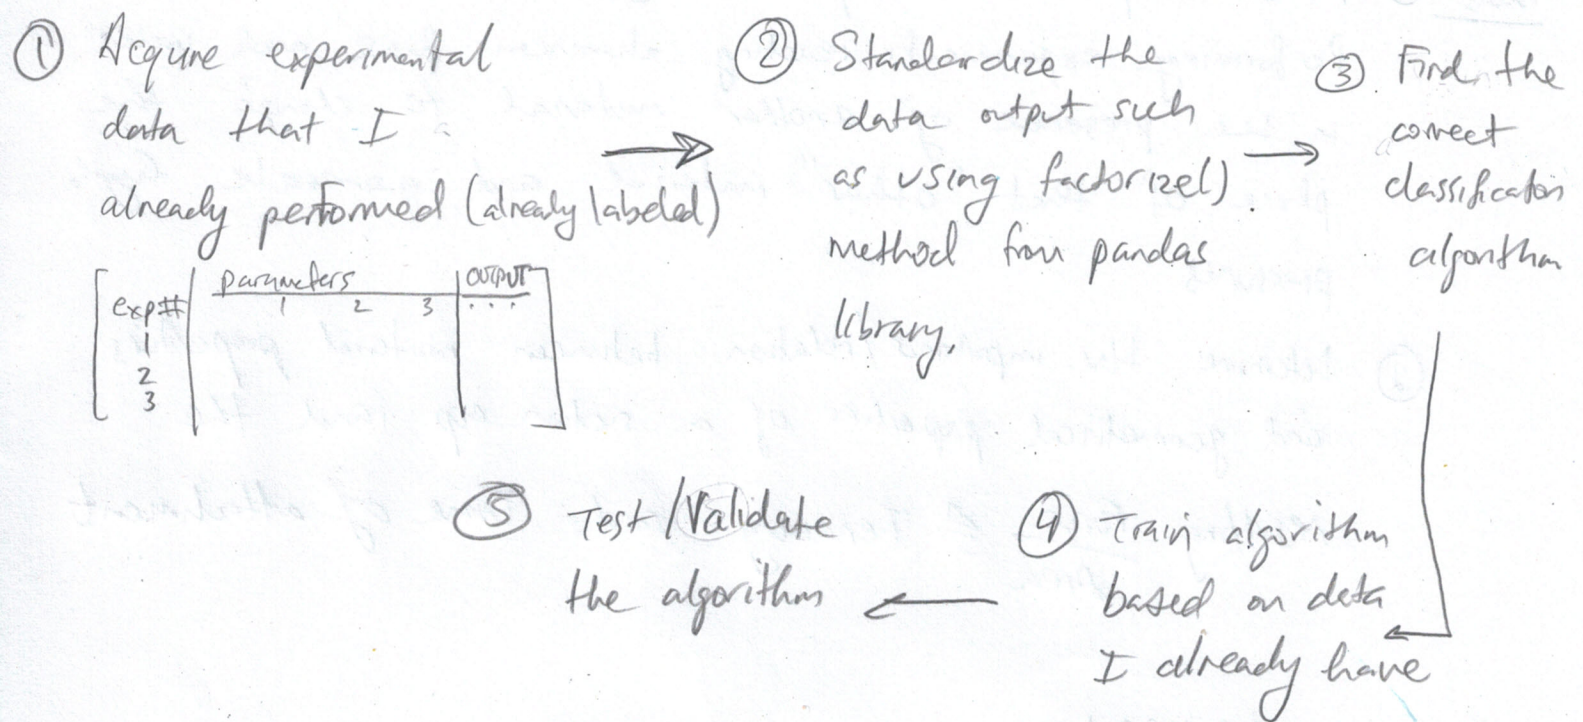 ① Acquire experimental
data that I
already performed (already labeled)
parameters
output
exp#
1 2 3
. . .
1
2
3
② Standardize the
data output such
as using factorize()
method from pandas
library.
③ Find the
correct
classification
algorithm
④ Train algorithm
based on data
I already have
⑤ Test/Validate
the algorithm